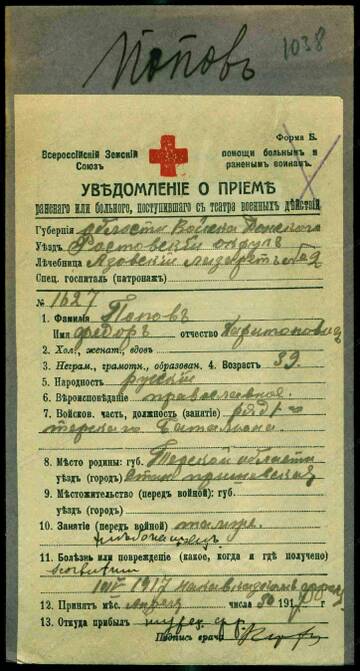 Поповъ
1038
Форма Б.
Всероссійскій Земскій Союзъ
помощи больнымъ и раненымъ воинамъ.
УВѢДОМЛЕНІЕ О ПРІЕМѢ
раненаго или больного, поступившаго съ театра военныхъ дѣйствій
Губернія области Войска Донского
Уѣздъ Ростовскій округъ
Лѣчебница Азовскій лазаретъ
Спец. госпиталь (патронажъ)
№ 1627
1. Фамилія Поповъ
Имя Федоръ отчество Харитоновичъ
2. Хол., женат., вдовъ
3. Неграм., грамотн., образован. 4. Возрастъ 39.
5. Народность русскій
6. Вѣроисповѣданіе православное.
7. Войсков. часть, должность (занятіе)
терскаго баталіона.
8. Мѣсто родины: губ. Терской области
уѣздъ (городъ) стан.
9. Мѣстожительство (передъ войной): губ.
уѣздъ (городъ)
10. Занятіе (передъ войной)
хлѣбопашецъ
11. Болѣзнь или поврежденіе (какое, когда и гдѣ получено)
1917 на кавказскомъ фронтѣ
12. Принятъ мѣс. апрѣля числа 30 191
13. Откуда прибылъ
Подпись врача